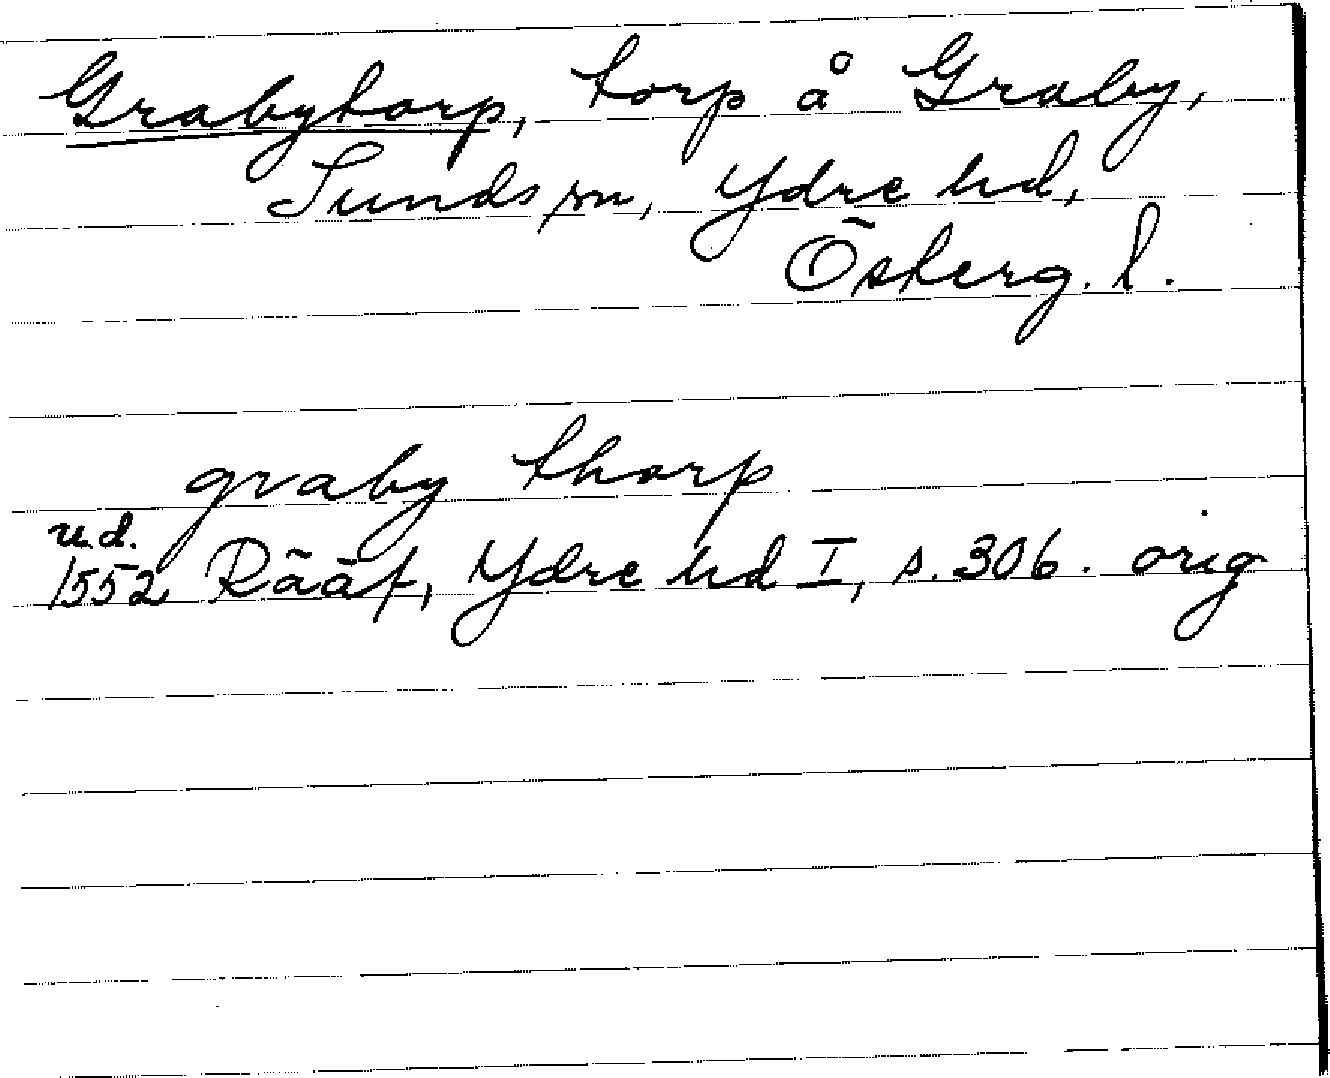 Grabytorp, torp å Graby,
Sunds sn, Ydre hd,
Österg. l.
graby thorp
u.d.
1552 Rääf, Ydre hd I, s. 306. orig